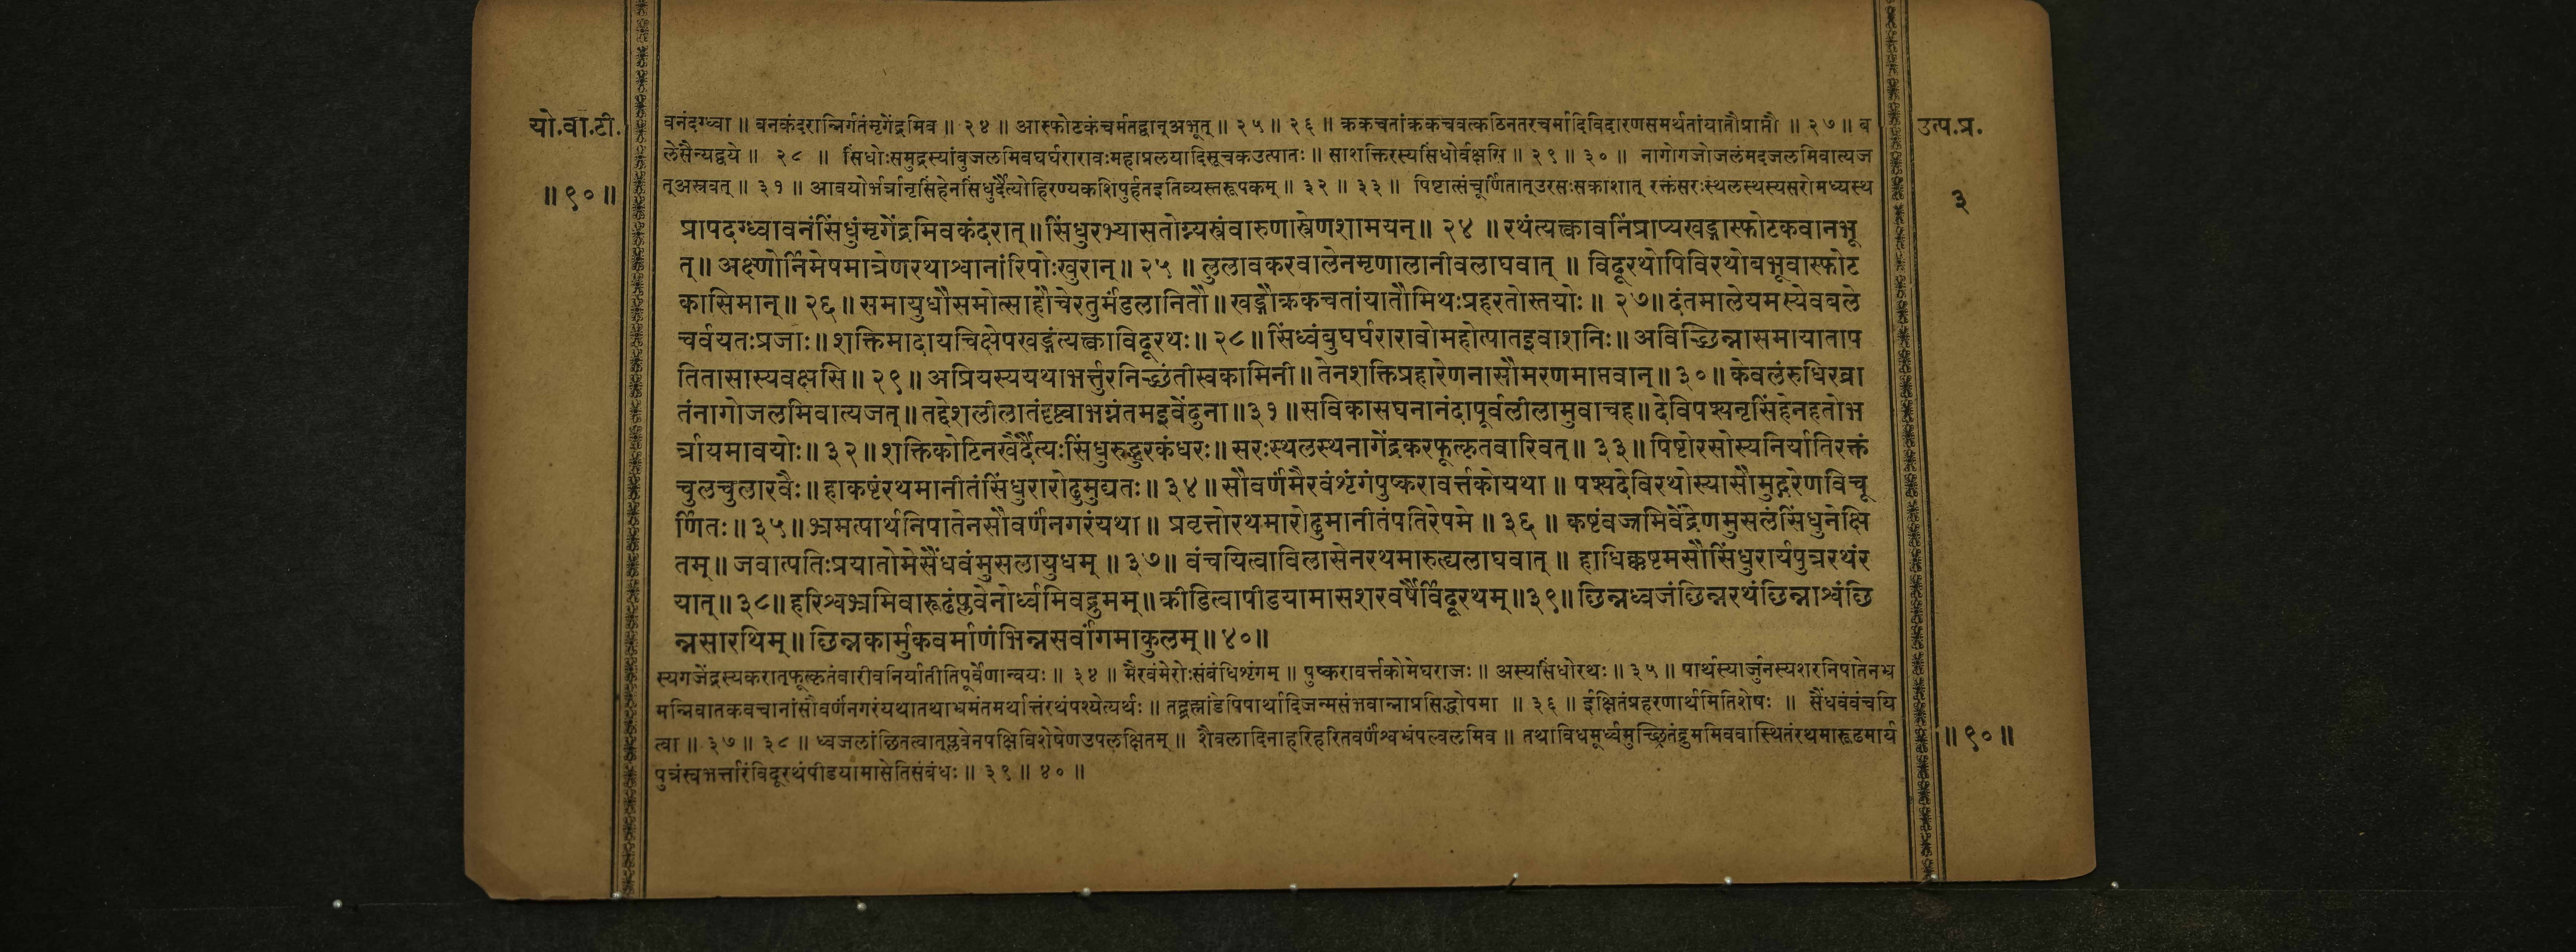 यो.वा.टी.
॥ ९० ॥
उत्प.प्र.
३
वनंदग्ध्वा ॥ वनकंदरान्निर्गतंमृगेंद्रमिव ॥ २४ ॥ आस्फोटकंचर्मतद्वान्अभूत् ॥ २५ ॥ २६ ॥ क्रकचतांक्रकचवत्कठिनतरचर्मादिविदारणसमर्थतांयातौप्राप्तौ ॥ २७ ॥ ब
लेसैन्यद्वये ॥ २८ ॥ सिंधोःसमुद्रस्यांबुजलमिवघर्घरारावःमहाप्रलयादिसूचकउत्पातः ॥ साशक्तिरस्यसिंधोर्वक्षसि ॥ २९ ॥ ३० ॥ नागोगजोजलंमदजलमिवात्यज
त्अस्रवत् ॥ ३१ ॥ आवयोर्भर्त्रानृसिंहेनसिंधुर्दैत्योहिरण्यकशिपुर्हतइतिव्यस्तरूपकम् ॥ ३२ ॥ ३३ ॥ पिष्टात्संचूर्णितात्उरसःसकाशात् रक्तंसरःस्थलस्थस्यसरोमध्यस्थ
प्रापदग्ध्वावनंसिंधुंमृगेंद्रमिवकंदरात् ॥ सिंधुरभ्यासतोग्न्यस्त्रंवारुणास्त्रेणशामयन् ॥ २४ ॥ रथंत्यत्क्वावनिंप्राप्यखड्गास्फोटकवानभू
त् ॥ अक्ष्णोर्निमेषमात्रेणरथाश्वानांरिपोःखुरान् ॥ २५ ॥ लुलावकरवालेनमृणालानीवलाघवात् ॥ विदूरथोपिविरथोबभूवास्फोट
कासिमान् ॥ २६ ॥ समायुधौसमोत्साहौचेरतुर्मंडलानितौ ॥ खड्गौक्रकचतांयातौमिथःप्रहरतोस्तयोः ॥ २७ ॥ दंतमालेयमस्येवबले
चर्वयतःप्रजाः ॥ शक्तिमादायचिक्षेपखड्गंत्यत्क्वाविदूरथः ॥ २८ ॥ सिंध्वंबुघर्घरारावोमहोत्पातइवाशनिः ॥ अविच्छिन्नासमायाताप
तितासास्यवक्षसि ॥ २९ ॥ अप्रियस्ययथाभर्त्तुरनिच्छंतीस्वकामिनी ॥ तेनशक्तिप्रहारेणनासौमरणमाप्तवान् ॥ ३० ॥ केवलंरुधिरव्रा
तंनागोजलमिवात्यजत् ॥ तद्देशलीलातंदृष्ट्वाभग्नंतमइवेंदुना ॥ ३१ ॥ सविकासघनानंदापूर्वलीलामुवाचह ॥ देविपश्यनृसिंहेनहतोभ
र्त्रायमावयोः ॥ ३२ ॥ शक्तिकोटिनखैर्दैत्यःसिंधुरुद्धुरकंधरः ॥ सरःस्थलस्थनागेंद्रकरफूत्कृतवारिवत् ॥ ३३ ॥ पिष्टोरसोस्यनिर्यातिरक्तं
चुलचुलारवैः ॥ हाकष्टंरथमानीतंसिंधुरारोढुमुद्यतः ॥ ३४ ॥ सौवर्णंमैरवंशृंगंपुष्करावर्त्तकोयथा ॥ पश्यदेविरथोस्यासौमुद्गरेणविचू
र्णितः ॥ ३५ ॥ भ्रमत्पार्थनिपातेनसौवर्णंनगरंयथा ॥ प्रवृत्तोरथमारोढुमानीतंपतिरेषमे ॥ ३६ ॥ कष्टंवज्रमिवेंद्रेणमुसलंसिंधुनेक्षि
तम् ॥ जवात्पतिःप्रयातोमेसैंधवंमुसलायुधम् ॥ ३७ ॥ वंचयित्वाविलासेनरथमारुह्यलाघवात् ॥ हाधिक्कष्टमसौसिंधुरार्यपुत्ररथंर
यात् ॥ ३८ ॥ हरिश्वभ्रमिवारूढंप्लवेनोर्ध्वमिवद्रुमम् ॥ क्रीडित्वापीडयामासशरवर्षैर्विदूरथम् ॥ ३९ ॥ छिन्नध्वजंछिन्नरथंछिन्नाश्वंछि
न्नसारथिम् ॥ छिन्नकार्मुकवर्माणंभिन्नसर्वांगमाकुलम् ॥ ४० ॥
स्यगजेंद्रस्यकरात्फूत्कृतंवारीवनिर्यातीतिपूर्वेणान्वयः ॥ ३४ ॥ मैरवंमेरोःसंबंधिशृंगम् ॥ पुष्करावर्त्तकोमेघराजः ॥ अस्यसिंधोरथः ॥ ३५ ॥ पार्थस्यार्जुनस्यशरनिपातेनभ्र
मन्निवातकवचानांसौवर्णंनगरंयथातथाभ्रमंतमर्थात्तंरथंपश्येत्यर्थः ॥ तद्ब्रह्मांडेपिपार्थादिजन्मसंभवान्नाप्रसिद्धोपमा ॥ ३६ ॥ ईक्षितंप्रहरणार्थमितिशेषः ॥ सैंधवंवंचयि
त्वा ॥ ३७ ॥ ३८ ॥ ध्वजलांछितत्वात्प्लवेनपक्षिविशेषेणउपलक्षितम् ॥ शैवलादिनाहरिहरितवर्णंश्वभ्रंपल्वलमिव ॥ तथाविधमूर्ध्वमुच्छ्रितंद्रुममिववास्थितंरथमारूढमार्य
पुत्रंस्वभर्त्तारंविदूरथंपीडयामासेतिसंबंधः ॥ ३९ ॥ ४० ॥
॥ ९० ॥